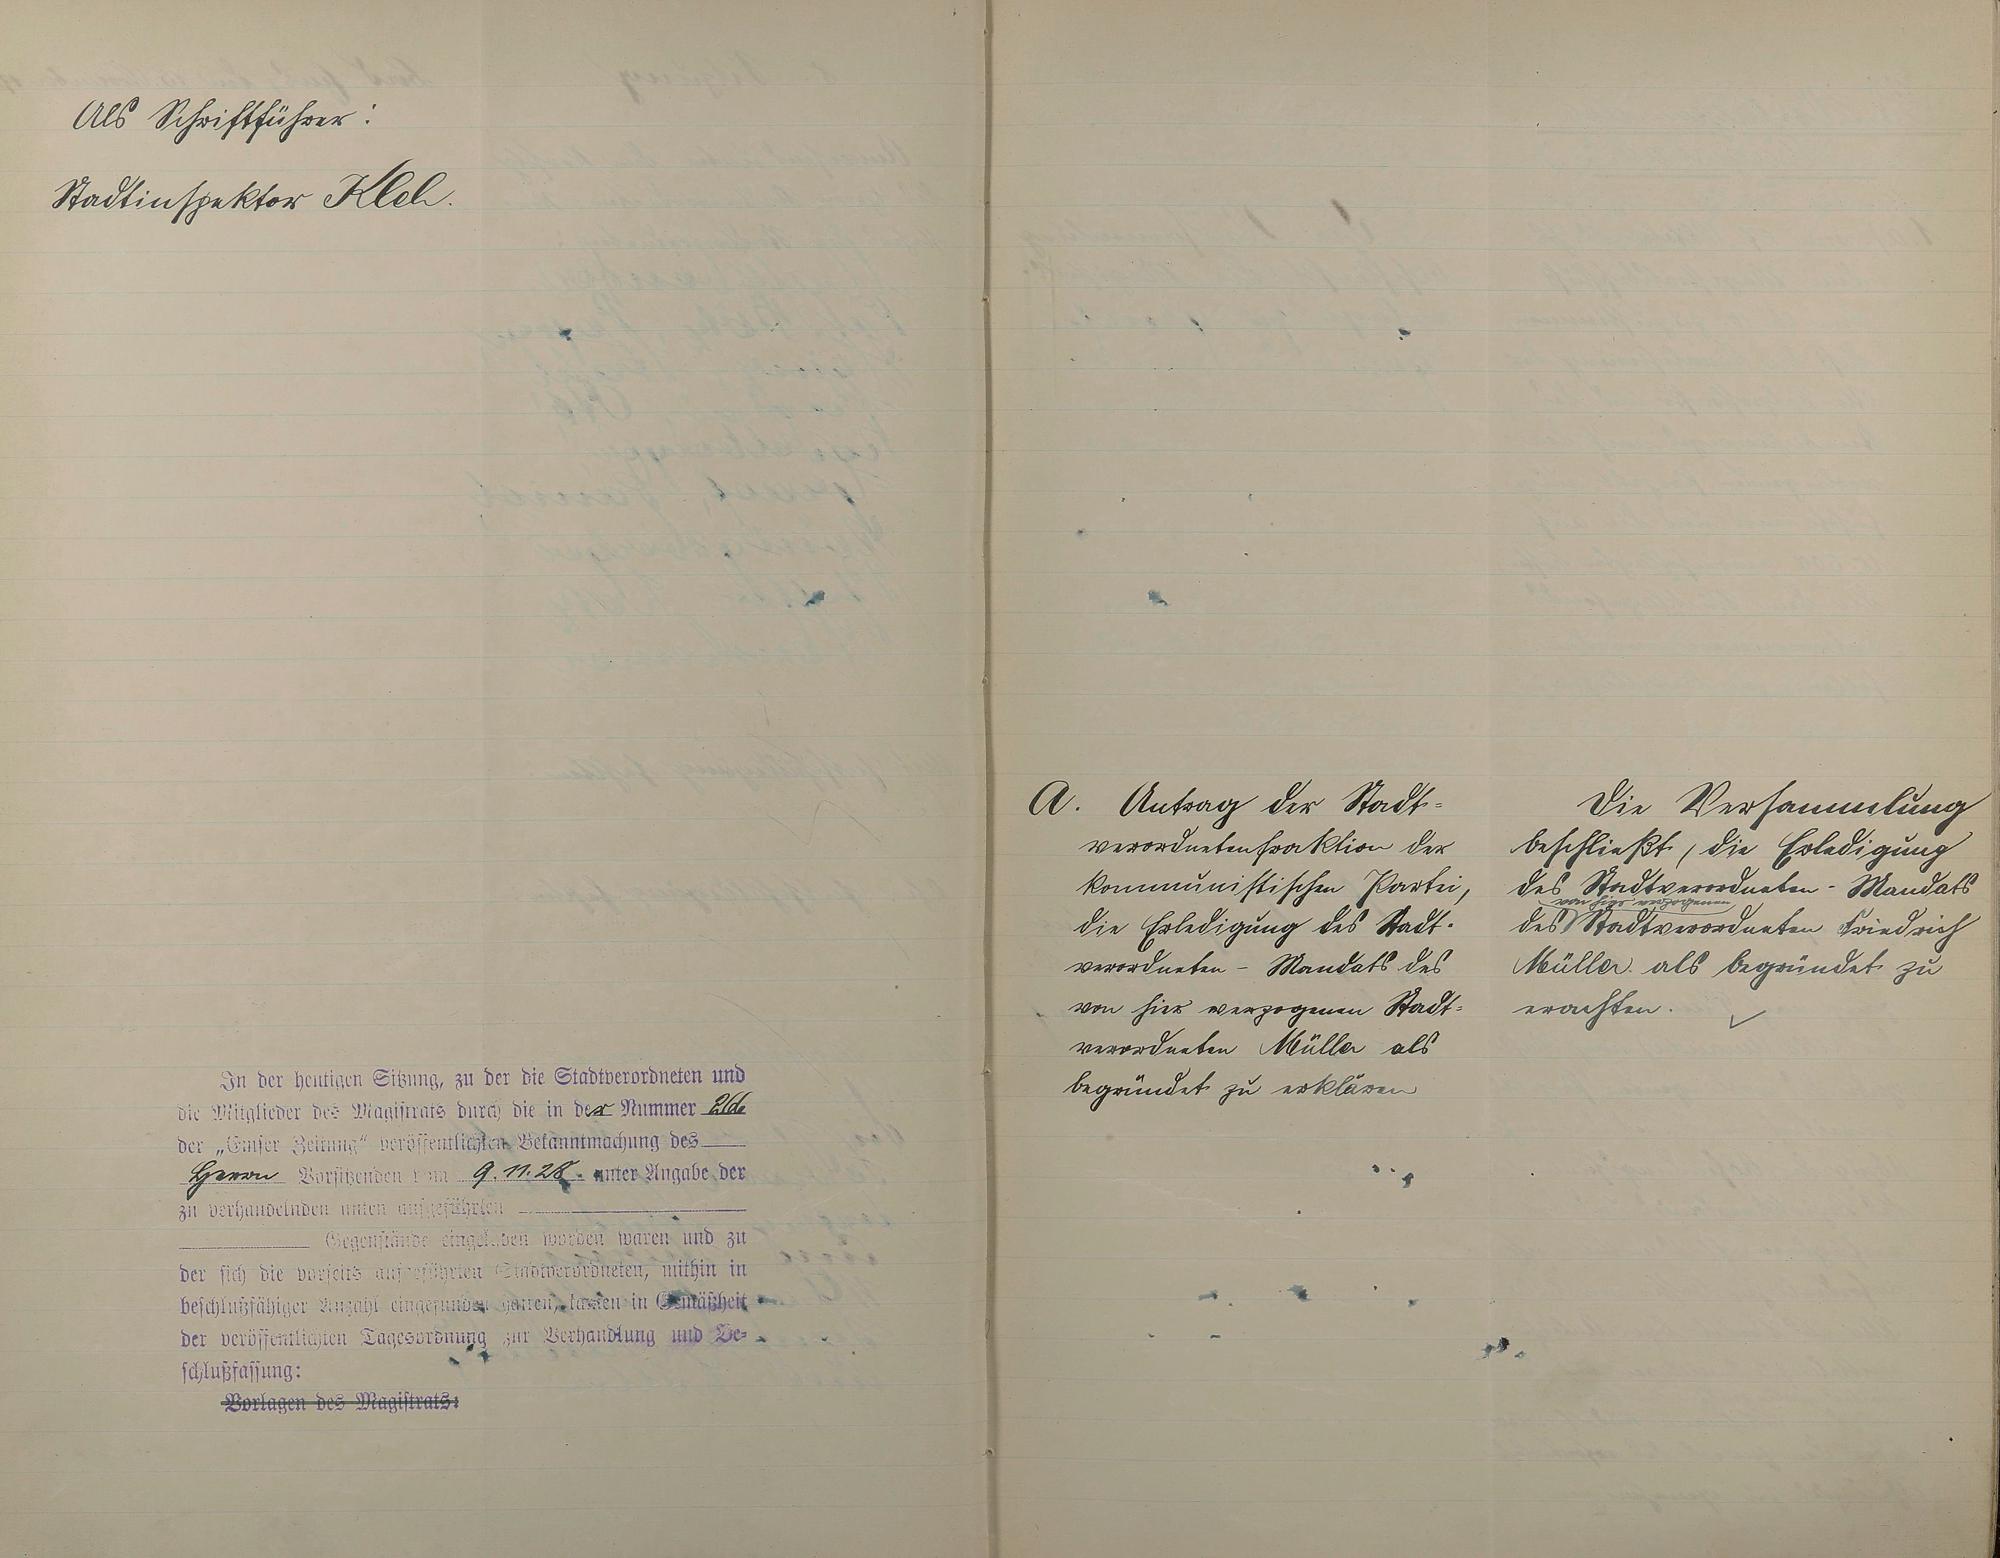 Als Schriftführer:
Stadtinspektor
In der heutigen Sitzung, zu der die Stadtverordneten und
die Mitglieder des Magistrats durch die in der Nummer
der „Emser Zeitung" veröffentlichten Bekanntmachung des
Herrn Vorsitzenden vom 9.11.28. unter Angabe der
zu verhandelnden unten aufgeführten
Gegenstände eingeladen worden waren und zu
der sich die vorseits aufgeführten Stadtverordneten, mithin in
beschlußfähiger Anzahl eingefunden hatten, kamen in Gemäßheit
der veröffentlichten Tagesordnung zur Verhandlung und Be-
schlußfassung:
Vorlagen des Magistrats:
A. Antrag der Stadt-
verordnetenfraktion der
kommunistischen Partei,
die Erledigung des Stadt-
verordneten - Mandats des
von hier verzogenen Stadt-
verordneten Müller als
begründet zu erklären
Die Versammlung
beschließt, die Erledigung
des Stadtverordneten - Mandats
von hier verzogenen
des Stadtverordneten Friedrich
Müller als begründet zu
erachten.